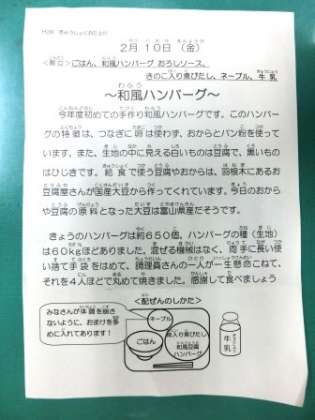 2月 10日 (金)
<献立>ごはん、和風ハンバーグ おろしソース、
きのこ入り煮びたし、ネーブル、牛乳
～和風ハンバーグ～
今年度初めての手作り和風ハンバーグです。このハンバー
グの特徴は、つなぎに卵は使わず、おからとパン粉を使って
います。また、生地の中に見える白いものは豆腐で、黒いもの
はひじきです。給食で使う豆腐やおからは、羽根木にあるお
豆腐屋さんが国産大豆から作ってくれています。今日のおから
や豆腐の原料となった大豆は富山県産だそうです。
きょうのハンバーグは約650個。ハンバーグの種(生地)
は60kgほどありました。混ぜる機械はなく、両手に長い使
い捨て手袋をはめて、調理員さんの一人が一生懸命こねて、
それを4人ほどで丸めて焼きました。感謝して食べましょう
<配ぜんのしかた>
みなさんが体調を崩さ
ないように、おまけを多
めに入れてあります！
ネーブル
煮入り煮びたし
ごはん
和風豆腐
ハンバーグ
牛乳